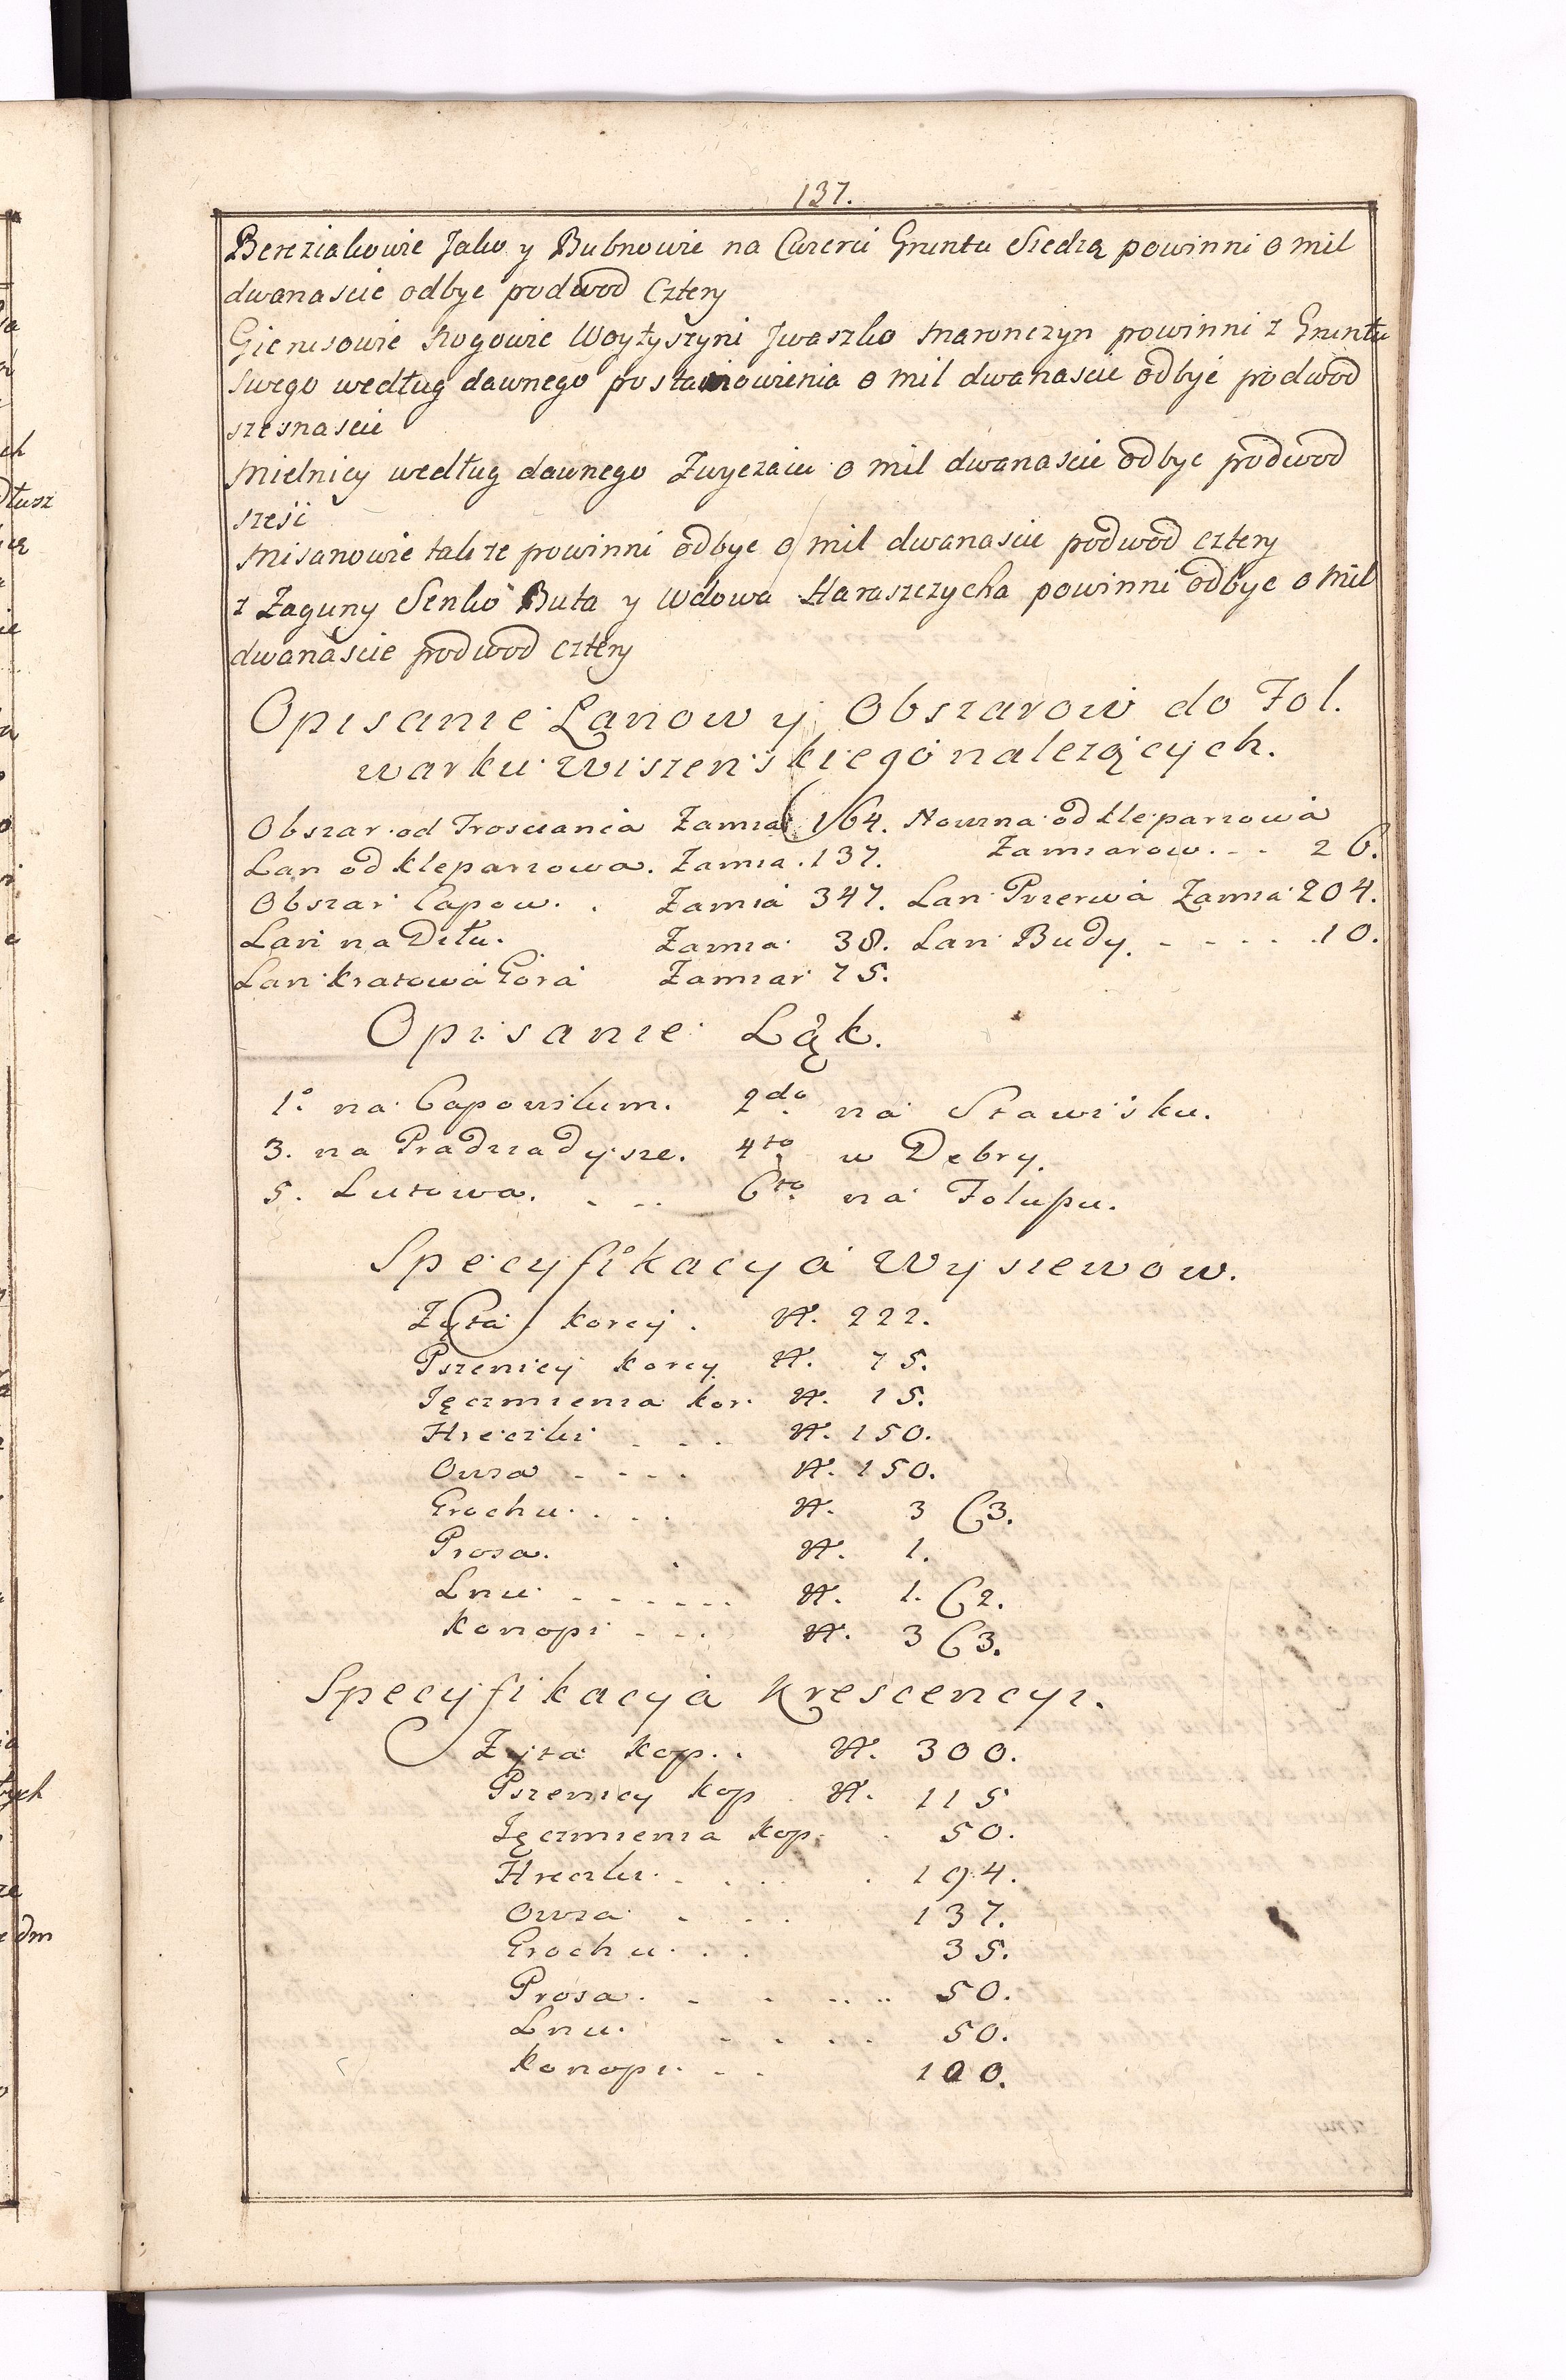 137.
Bereziakowie Jako y Bubnowie na Czerci Gruntu Siedzą powinni o mil
dwanascie odbyc podwod Cztery
Gienisowie Rogowie Woytyszyni Jwaszko Maronczyn powinni z Gruntu
swego według dawnego postanowienia o mil dwanascie odbyć podwod
szesnascie
Mielnicy według dawnego Zwyczaiu o mil dwanascie odbyc podwod
sześć
Misanowie takze powinni odbyc o mil dwanascie podwod cztery
z Zaguny Senko Buta y Wdowa Haraszczycha powinni odbyc o mil
dwanascie podwod cztery
Opisanie Lanow y Obszarow do Fol.
warku Wiszenskiego nalezących.
Obszar od Troscianca Zamia 164. Nowina od Kleparowa
Lan od Kleparowa. Zamia. 137. Zamiarow. - - 26.
Obszar Capow. . Zamia 347. Lan Przerwa Zamia 204.
Lan na Diłu. Zamia 38. Lan Budy. - - - . . 10.
Lan Kratowa Gora Zamiar 75.
Opisanie Ląk.
1º na Capowskum. 2do na Stawisku.
3. na Pradziadysze. 4to w Debry.
5. Lutowa. - - - 6to na Folupu.
Specyfikacya Wysiewow.
Zyta korcy. N. 222.
Pszenicy korcy N. 75.
Jęczmienia kor. N. 15.
Hreczki - - - N. 150.
Owsa - - - - N. 150.
Grochu. . . . N. 3 C3.
Prosa. . N. 1.
Lnu - - - - - - N. 1. C2.
Konopi - - - N. 3 C3.
Specyfikacya Krescencyi.
Zyta kop. . N. 300.
Pszenicy kop . N. 115
Jęczmienia kop. . 50.
Hreczki. - . . . . 194.
Owsa - - . . 137.
Grochu. . . 35.
Prosa. - - .. .. 50.
Lnu. - - - - 50.
Konopi. - - 100.